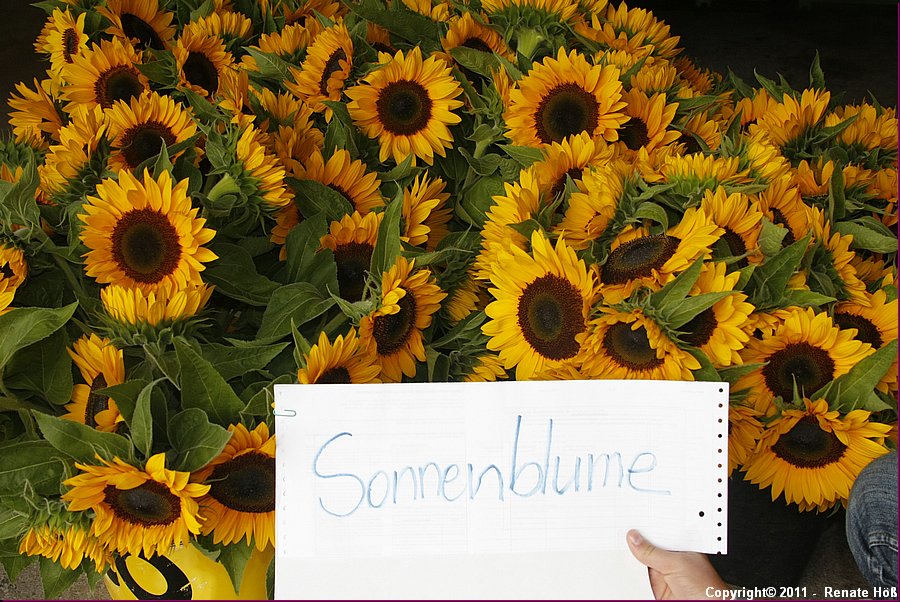 Sonnenblume
Copyright© 2011 - Renate Höß